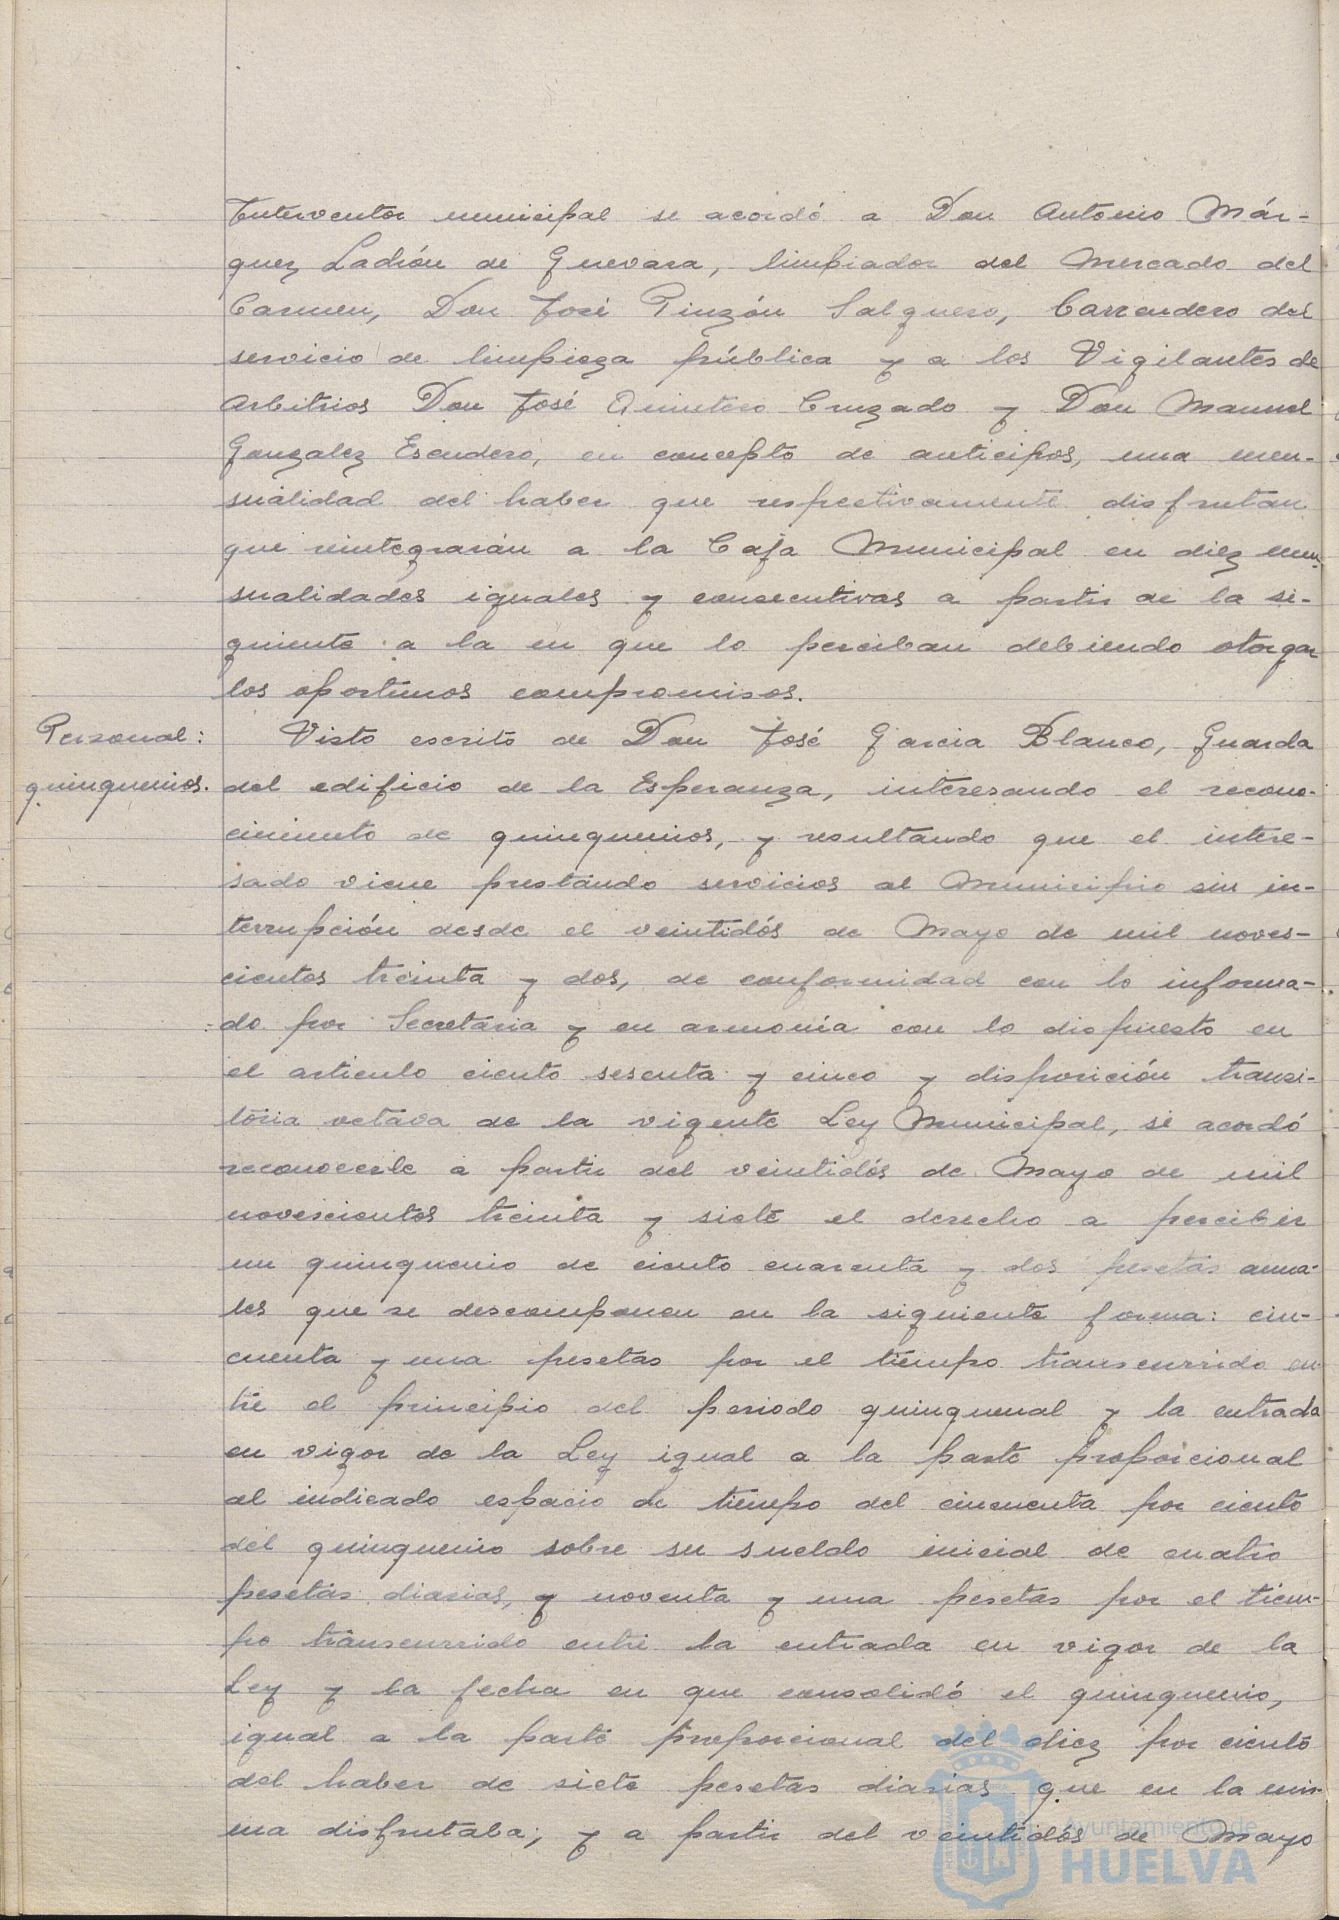 Interventor municipal se acordó a Don Antonio Már-
quez Ladrón de Guevara, limpiador del Mercado del
Carmen, Don José Pinzón Salguero, barrendero del
servicio de limpieza pública y a los Vigilantes de
Arbitrios Don José Quintero Cruzado y Don Manuel
Gonzalez Escudero, en concepto de anticipos, una men-
sualidad del haber que respectivamente disfrutan
que reintegrarán a la Caja Municipal en diez men-
sualidades iguales y consecutivas a partir de la si-
guiente a la en que lo perciban debiendo otorgar
los oportunos compromisos.
Personal:
quinquenios.
Visto escrito de Don José Garcia Blanco, Guarda
del edificio de la Esperanza, interesando el recono-
cimiento de quinquenios, y resultando que el intere-
sado viene prestando servicios al Municipio sin in-
terrupción desde el veintidós de Mayo de mil noves-
cientos treinta y dos, de conformidad con lo informa-
do por Secretaria y en armonia con lo dispuesto en
el articulo ciento sesenta y cinco y disposición transi-
toria octava de la vigente Ley Municipal, se acordó
reconocerle a partir del veintidós de Mayo de mil
novescientos treinta y siete el derecho a percibir
un quinquenio de ciento cuarenta y dos pesetas anua-
les que se descomponen en la siguiente forma: cin-
cuenta y una pesetas por el tiempo transcurrido en-
tre el principio del periodo quinquenal y la entrada
en vigor de la Ley igual a la parte proporcional
al indicado espacio de tiempo del cincuenta por ciento
del quinquenio sobre su sueldo inicial de cuatro
pesetas diarias, y noventa y una pesetas por el tiem-
po transcurrido entre la entrada en vigor de la
Ley y la fecha en que consolidó el quinquenio,
igual a la parte proporcional del diez por ciento
del haber de siete pesetas diarias que en la mis-
ma disfrutaba; y a partir del veintidós de Mayo
Ayuntamiento de
HUELVA